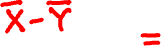 X̅-Y̅ =